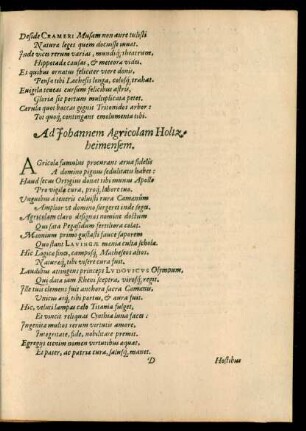 Deside CRAMERI Musam non aure tulisti
Natura leges quem docuisse iuuat.
Inde vices rerum varias, mundiq; theatrum,
Hippotadæ causas, & meteora vides.
Et quibus ornatus feliciter vtere donis,
Pensa tibi Lachesis longa, colosq; trahat.
Gloria sic partum multiplicata petet.
Ad Johannem Agricolam Holtz-
heimensem.
AGricola famulus procurans arua fidelis
A domino pignus sedulitatis habet:
Haud secus Ortygius donat tibi munus Apollo
Pro vigili cura, proq; labore tuo.
Vnguibus à teneris coluisti rura Camœnum
Amplior vt domino surgeret inde seges.
Agricolam claro designas nomine doctum
Qui sata Pegasidum fertiliora colat.
Mæonium primo gustasti fauce saporem
Quo stant LAVINGÆ mœnia culta scholæ.
Hic Logica sines, camposq; Matheseos altos.
Naturæq; tibi visere cura fuit.
Laudibus attingens princeps LVDOVICVS Olympum,
Qui dura iam Rheni sceptra, virosq; regit.
Ille tuis clemens fuit anchora sacra Camœnis,
Vnicus atq; tibi portus, & aura fuit.
Hic, veluti lampas cœlo Titania fulget,
Et vincit reliquas Cynthia iuncta faces:
Ingenÿs multos rerum virtutis amore,
Integritate, fide, nobilitate premit.
Egregÿ etenim nomen virtutibus æquat,
Et pater, ac patriæ cura, salusq; manet.
D Hostibus